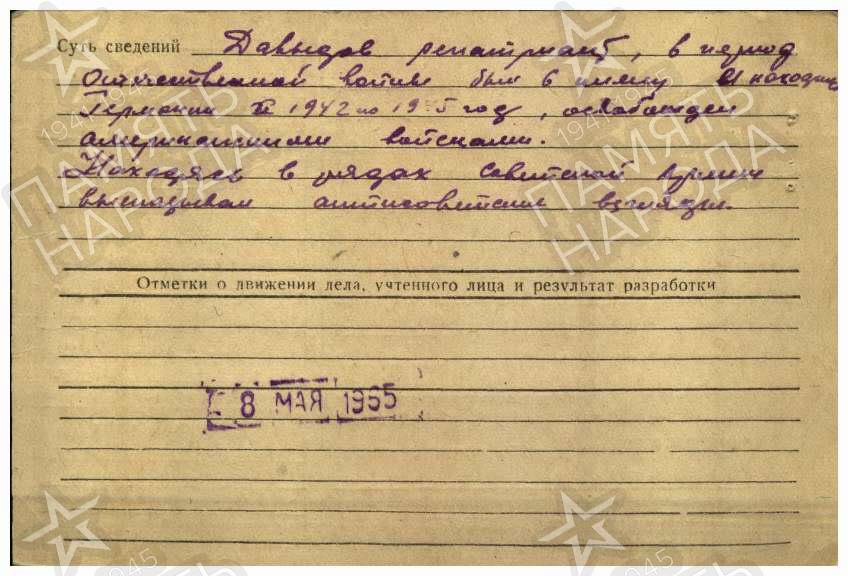 Суть сведений Давыдов репатриант, в период
Отечественной войны был в плену и находил
Германии с 1942 по 1945 год, освобожден
американскими войсками.
Находясь в рядах Советской Армии
высказывал антисоветские взгляды.
Отметки о движении дела, учтенного лица и результат разработки
8 МАЯ 1965
ПАМЯТЬ
НАРОДА
1941
1945
ПАМЯТЬ
НАРОДА
1941
1945